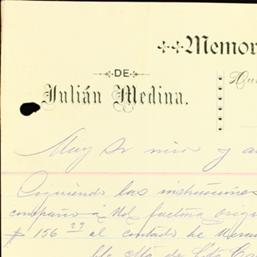 Memor
DE
Julián Medina.
Muy Sr mio y a
Siguiendo las instrucciones
compaño á Vd factura origi
$ 156 77 al contado de Merca